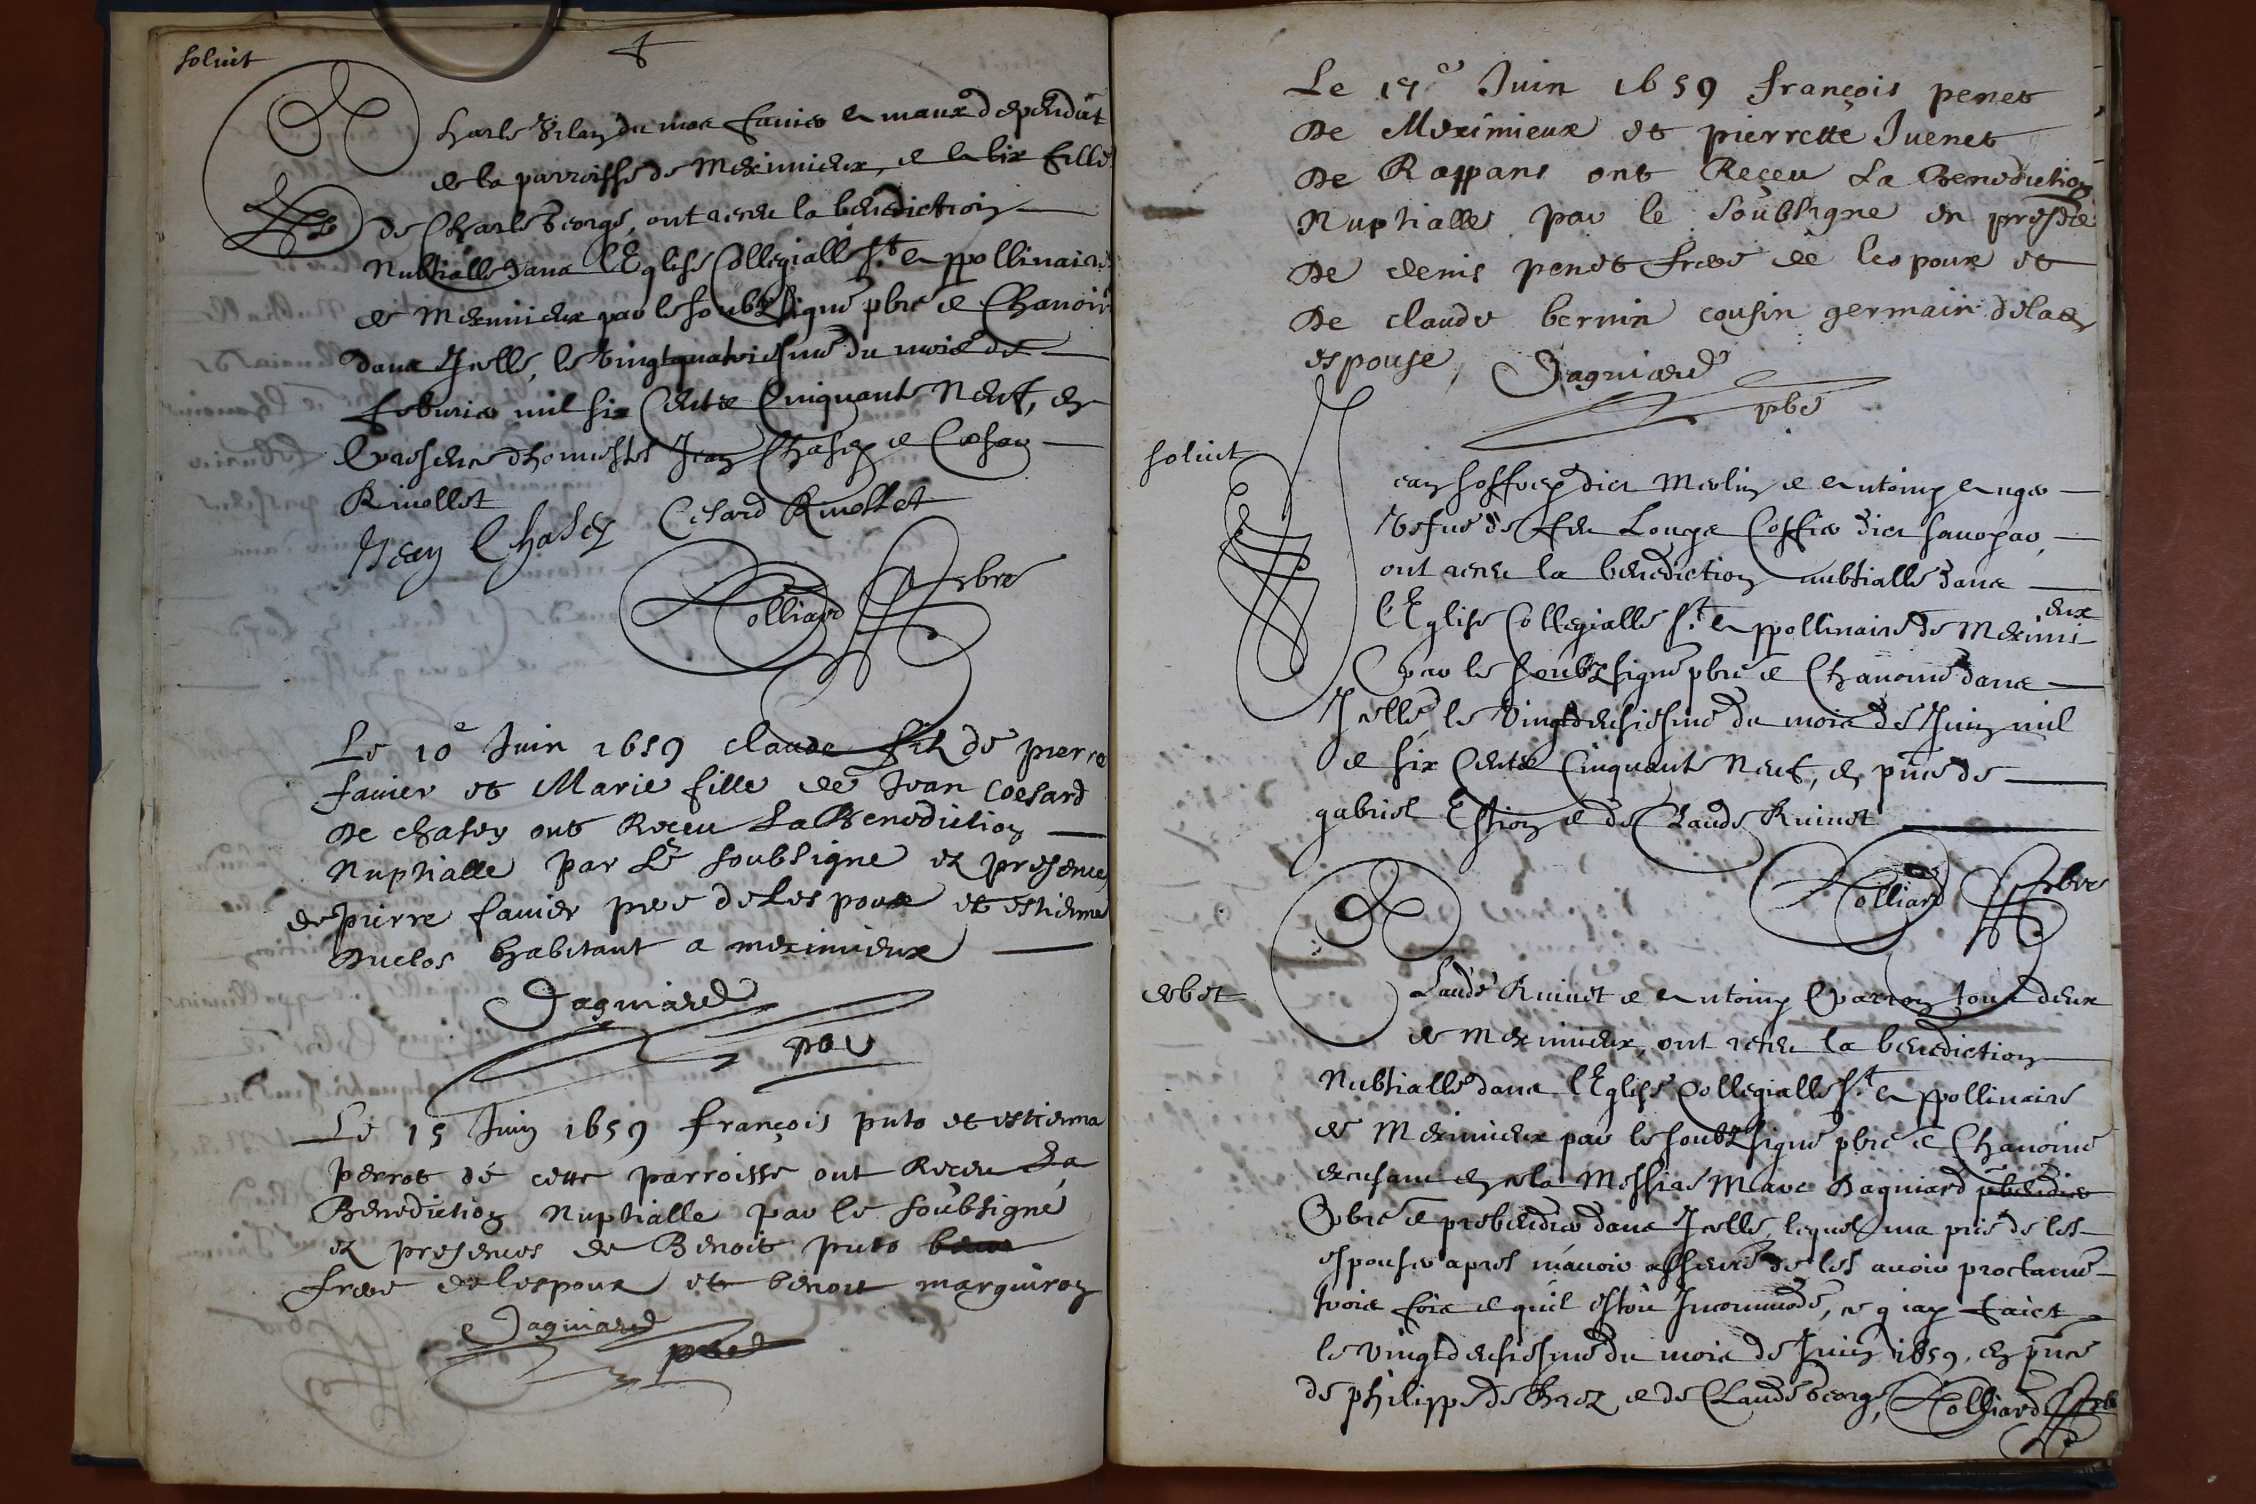 soluit
Charle Vilan du mas favier en maux dependant
de la parroisse de Meximieux, et la bix fille
de Charle George, ont receu la benediction
Nubtialle dans l'Eglise Collegialle St. Appollinaire
de Meximieux par le soubzsigné pbre et Chanoin
dans Jcelle, le vingtquatriesme du mois de
febvrier mil six Cents Cinquante Neuf, en
presence d'honnestes Jean Chasey et Cesar
Rivollet
Jean Chasey Cesard Rivollet
Colliard pbre
Le 10e Juin 1659 claude fils de pierre
favier et Marie fille de Jean Coesard
De chasey ont Receu La Benediction
Nuptialle par Le soubsigne en presence
de pierre favier pere de lespoux et estienne
Duclos habitant a meximieux
Dagniard
pbre
Le 15 Juin 1659 françois puto et estienna
perrot de cette parroisse ont Receu La
Benediction Nuptialle par le soubsigné
en presences de Benoit puto
frere de lespoux et benoit marguiron
Dagniard
pbre
Le 17e Juin 1659 françois penet
De Meximieux et pierrette Juenet
De Rappans ont Reçeu La Benediction
Nuptialle par le soubsigne en presence
De denis penet frere de lespoux et
De claude bernin cousin germain de la
espouse, Dagniard
pbre
soluit
Jean Joffrey dict Merlin et Antoina Auger
Vefue de feu Louys Coffier dict savoyar,
ont receu la benediction nubtialle dans
l'Eglise Collegialle St. Appollinaire de Meximieux
par le soubzsigné pbre et Chanoine dans
Jcelle, le vingtdeusiesme du mois de Juin mil
et six Cents Cinquante Neuf, en pnce de
gabriel Estion et de Claude Ruinet
Colliard pbre
debet
Claude Ruinet et Antoina Parron tous deux
de Meximieux, ont receu la benediction
Nubtialle dans l'Eglise Collegialle St. Appollinaire
de Meximieux par le soubzsigné pbre et Chanoine
excusant en cela Messire Marc Dagniard
pbre et prebendier dans Jcelle, lequel ma prié de les
espouser apres m'avoir asseuré de les avoir proclamé
trois fois et quil estoit Jncommodé, ce q iay faict
le vingtdeusiesme du mois de Juin 1659, en pnce
de philippe de Brez et de Claude George, Colliard pbre